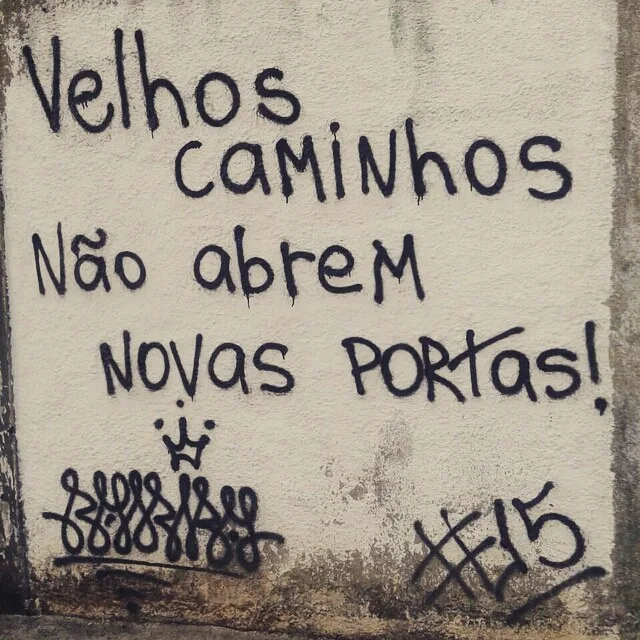 Velhos
caminhos
Não abrem
novas portas!
#15